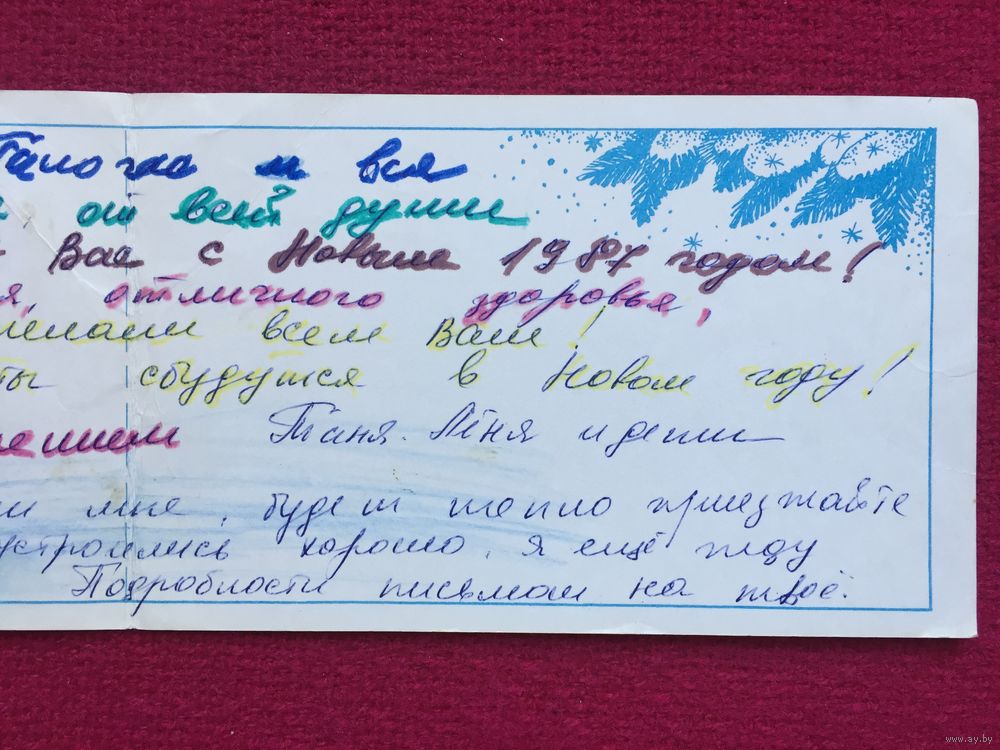 Галочка и вся
от всей души
Вас с Новым 1987 годом!
я, отличного здоровья,
желаем всем Вам!
ты сбудутся в Новом году!
Таня. Лёня и дети
мне, будет тепло приезжайте
устроились хорошо, я ещё жду
Подробности письмом на твоё.
www.ay.by